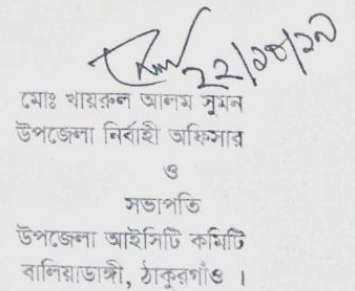 ২২/১০/২০
মোঃ খায়রুল আলম সুমন
উপজেলা নির্বাহী অফিসার
ও
সভাপতি
উপজেলা আইসিটি কমিটি
বালিয়াডাঙ্গী, ঠাকুরগাঁও ।